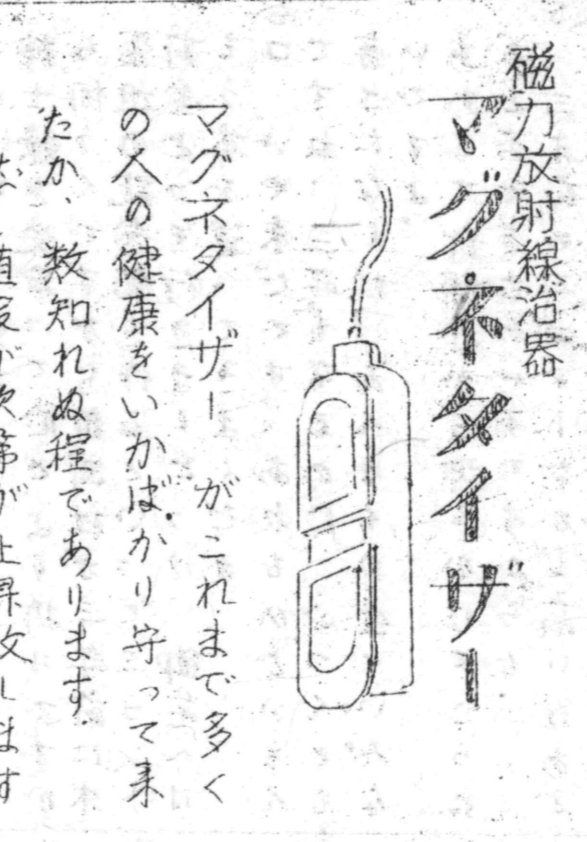 磁力放射線治器
マグネタイザー
マグネタイザー がこれまで多く
の人の健康をいかばかり守って来
たか、数知れぬ程であります
値段が次第が上昇致します